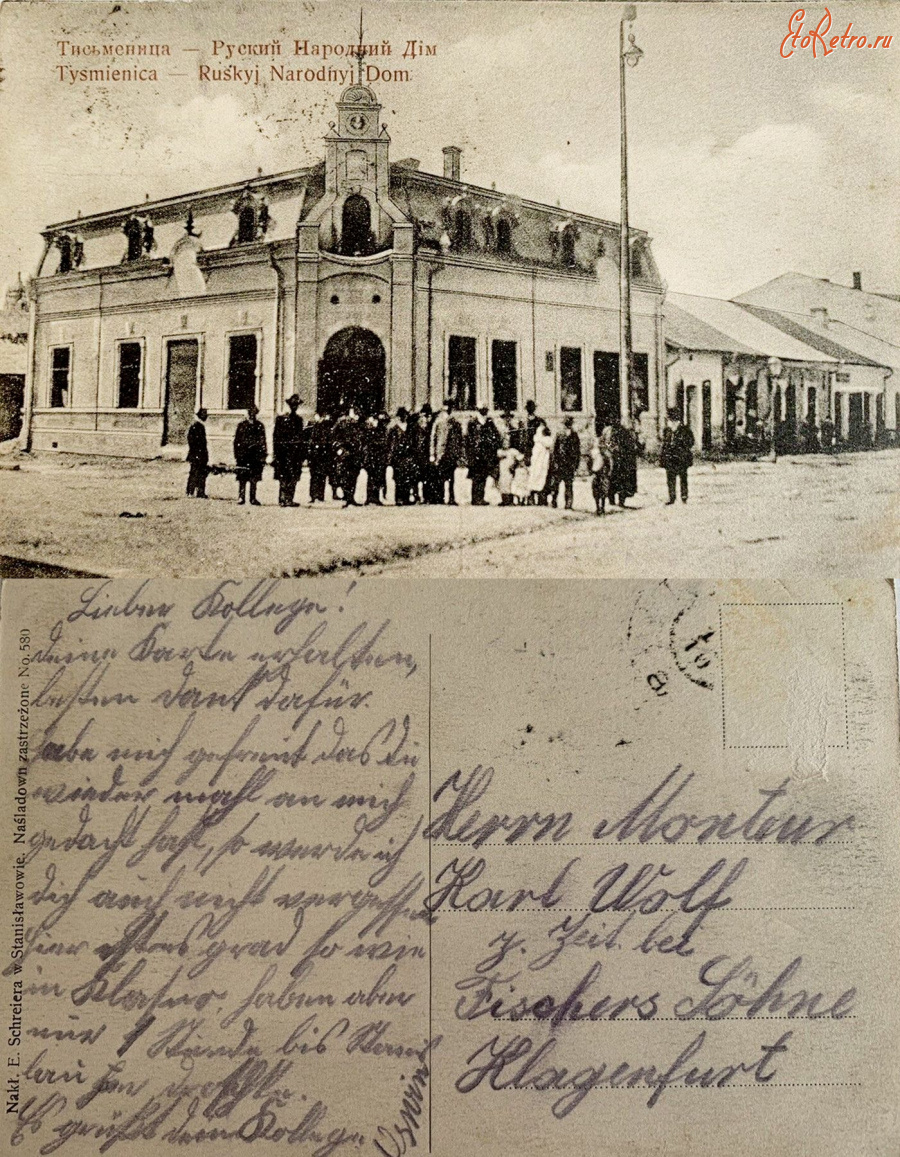 EtoRetro.ru
Тисьменица — Руский Народний Дім
Tyśmienica — Ruskyj Narodnyj Dom.
Nakł. E. Schreiera w Stanisławowie. Naśladown zastrzeżone No. 580
Lieber Kollege!
deine Karte erhalten,
besten dank dafür.
habe mich gefreut das Du
wieder mahl an mich
gedacht hast, so werde ich
dich auch nicht vergessen
hier ist es grad so wie
in haben aber
nur 1 Stunde bis Stanis
lau per
Es grüßt dein Kollege
Herrn Monteur
Karl Wolf
z. Zeit. bei
Fischers Söhne
Klagenfurt